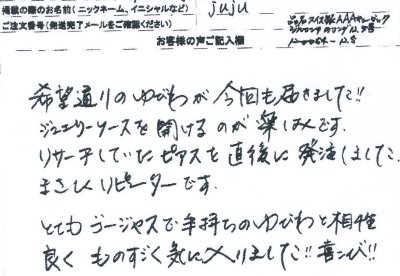 掲載の際のお名前(ニックネーム、イニシャルなど)
juju
ご注文番号(発送完了メールをご確認ください)
お客様の声ご記入欄
希望通りのゆびわが今回も届きました!!
ジュエリーケースを開けるのが楽しみです。
リサーチしていたピアスを直後に発注しました。
まさしくリピーターです。
とてもゴージャスで手持ちのゆびわと相性
良く ものすごく気に入りました!!喜こび!!